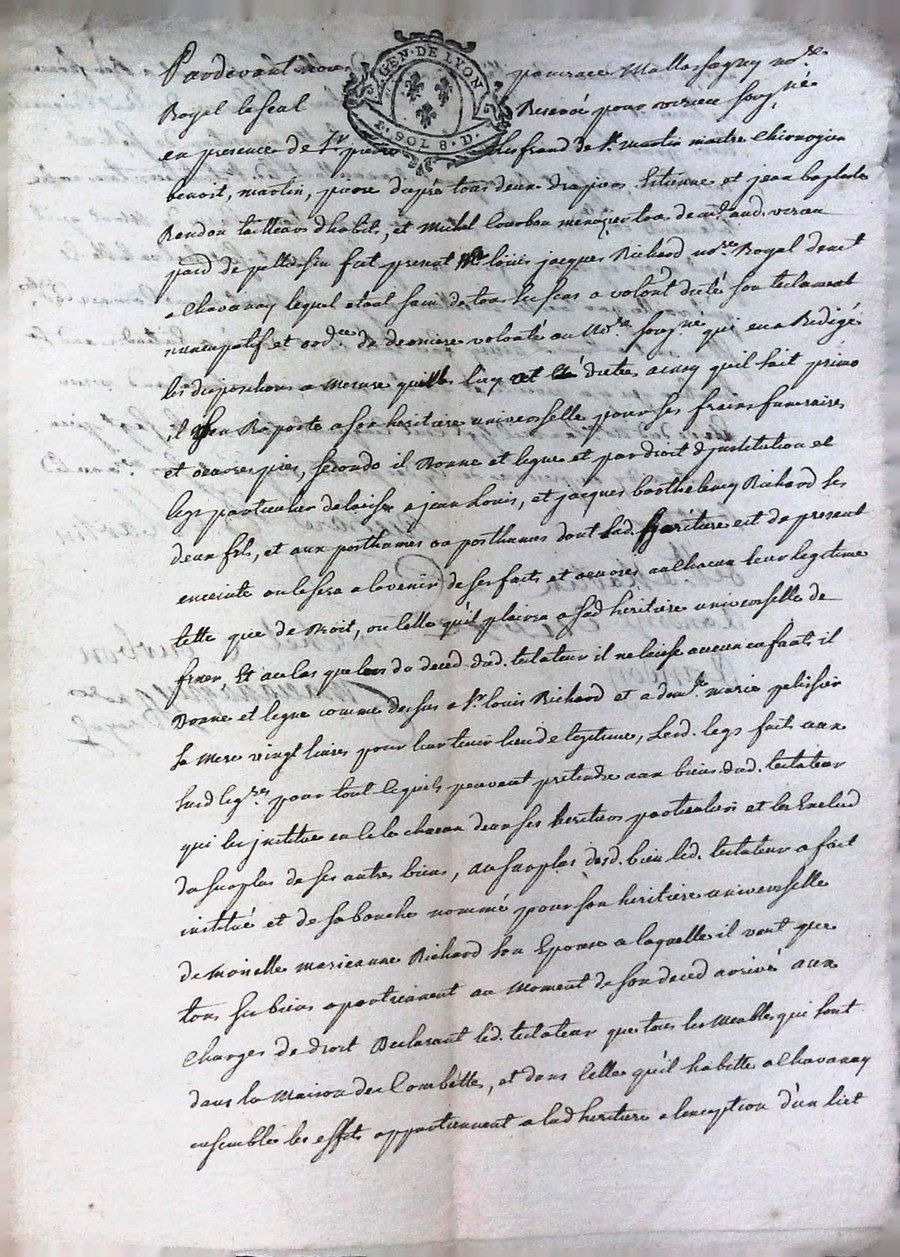 GEN. DE LYON
I. SOL 8. D.
Pardevant nous pancrace Mallassagny no.re
Royal le seal Reservé pour verrieu soug.né
en presence de S.r pierre de S.t martin maitre chirurgien
benoit, martin, pierre dupré tous deux drapiers Estienne et jean baptiste
Rondon tailleurs d'habit, et Michel Courbon menuzier tous dem.t aud. verieu
fait present M.e louis jacques Richard no.re Royal dem.t
a Chavanay lequel etant sain de tous ses sens a volont. dicté son testament
nuncupatif et ord.ce de derniere volonté au No.re soug.né qui en a Redigé
les dispositions a mesure quil les luy et dictés ainsy quil suit primo
il s'en Raporte a son heritiere universelle pour ses fraix funeraires
et oeuvres pies, secondo il Donne et legue et par droit d'institution et
legs particulier delaisse a jean Louis, et jacques barthelemy Richard ses
deux fils, et aux posthumes ou posthumes dont lad. heritiere est de present
enceinte ou le sera a lavenir de ses faits et oeuvres a chacun leur legitime
telle que de Droit, ou telle qu'il plaira a sad. heritiere universelle de
fixer Et au cas que lors du deced dud. testateur il ne laisse aucun enfants il
Donne et legue comme dessus a S.r louis Richard et a dem.lle marie pelissier
sa mere vingt livres pour leur tenir lieu de legitime, Lesd. legs faits aux
susd. leg.res pour tout ce quils peuvent pretendre aux biens dud. testateur
qui les jnstitue en cela chacun deux ses heritiers particuliers et les Exclud
du surplus de ses autres biens, au surplus desd. biens led. testateur a fait
institué et de sa bouche nommé pour son heritiere universelle
demoiselle marieanne Richard son Epouse a laquelle il veut que
tous ses biens apartiennent au Moment de son deced arrivé aux
charges de droit Declarant led. testateur que tous les Meubles qui sont
dans la Maison des Combettes, et dans celle qu'il habitte a Chavanay
ensembles les effets appartiennent a lad. heritiere a lexception d'un liet